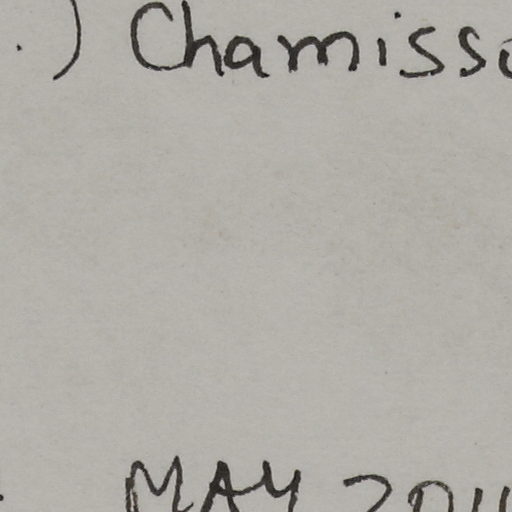 .) Chamisso
MAY 2011